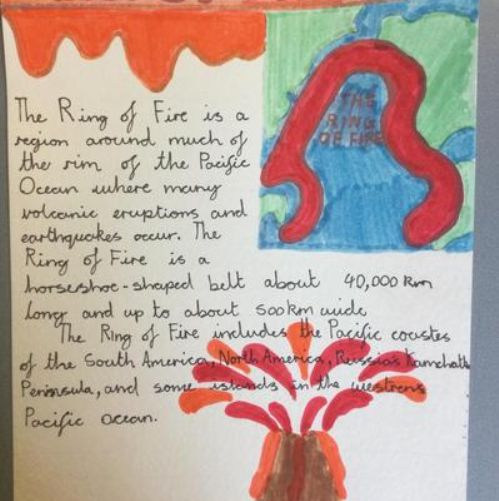 THE
RING
OF FIRE
The Ring of Fire is a
region around much of
the rim of the Pacific
Ocean where many
volcanic eruptions and
earthquakes occur. The
Ring of Fire is a
horseshoe-shaped belt about 40,000 km
long and up to about 500km wide
The Ring of Fire includes the Pacific coastes
of the South America, North America, Russia's Kamchatk
Peninsula, and some islands in the westrens
Pacific ocean.